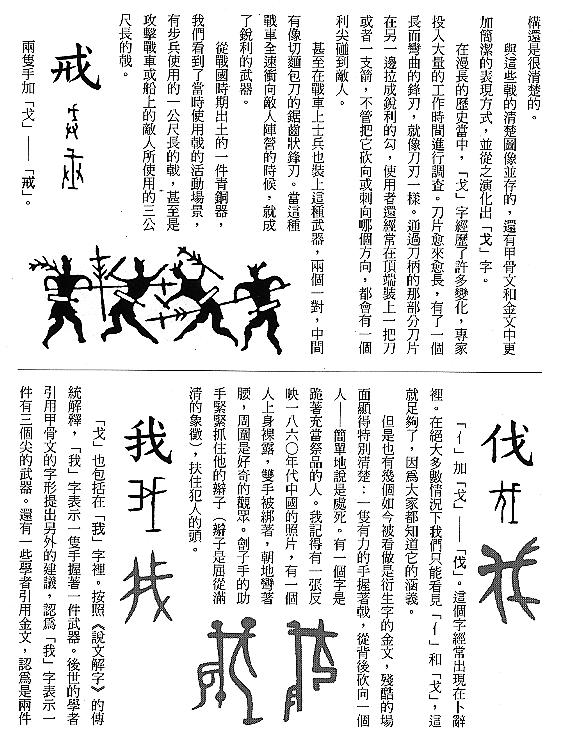 構還是很清楚的。
與這些戟的清楚圖像並存的，還有甲骨文和金文中更
加簡潔的表現方式，並從之演化出「戈」字。
在漫長的歷史當中，「戈」字經歷了許多變化，專家
投入大量的工作時間進行調查。刀片愈來愈長，有了一個
長而彎曲的鋒刃，就像刀刃一樣。通過刀柄的那部分刀片
在另一邊拉成銳利的勾，使用者還經常在頂端裝上一把刀
或者一支箭，不管把它砍向或刺向哪個方向，都會有一個
利尖碰到敵人。
甚至在戰車上士兵也裝上這種武器，兩個一對，中間
有像切麵包刀的鋸齒狀鋒刃。當這種
戰車全速衝向敵人陣營的時候，就成
了銳利的武器。
從戰國時期出土的一件青銅器，
我們看到了當時使用戟的活動場景，
有步兵使用的一公尺長的戟，甚至是
攻擊戰車或船上的敵人所使用的三公
尺長的戟。
戒
兩隻手加「戈」——「戒」。
伐
「亻」加「戈」——「伐」。這個字經常出現在卜辭
裡。在絕大多數情況下我們只能看見「亻」和「戈」，這
就足夠了，因爲大家都知道它的涵義。
但是也有幾個如今被看做是衍生字的金文，殘酷的場
面顯得特別清楚：一隻有力的手握著戟，從背後砍向一個
人——簡單地說是處死。有一個字是
跪著充當祭品的人。我記得有一張反
映一八六〇年代中國的照片，有一個
人上身裸露，雙手被綁著，朝地彎著
腰，周圍是好奇的觀眾。劊子手的助
手緊緊抓住他的辮子（辮子是屈從滿
清的象徵），扶住犯人的頭。
我
「戈」也包括在「我」字裡。按照《說文解字》的傳
統解釋，「我」字表示一隻手握著一件武器。後世的學者
引用甲骨文的字形提出另外的建議，認爲「我」字表示一
件有三個尖的武器。還有一些學者引用金文，認爲是兩件